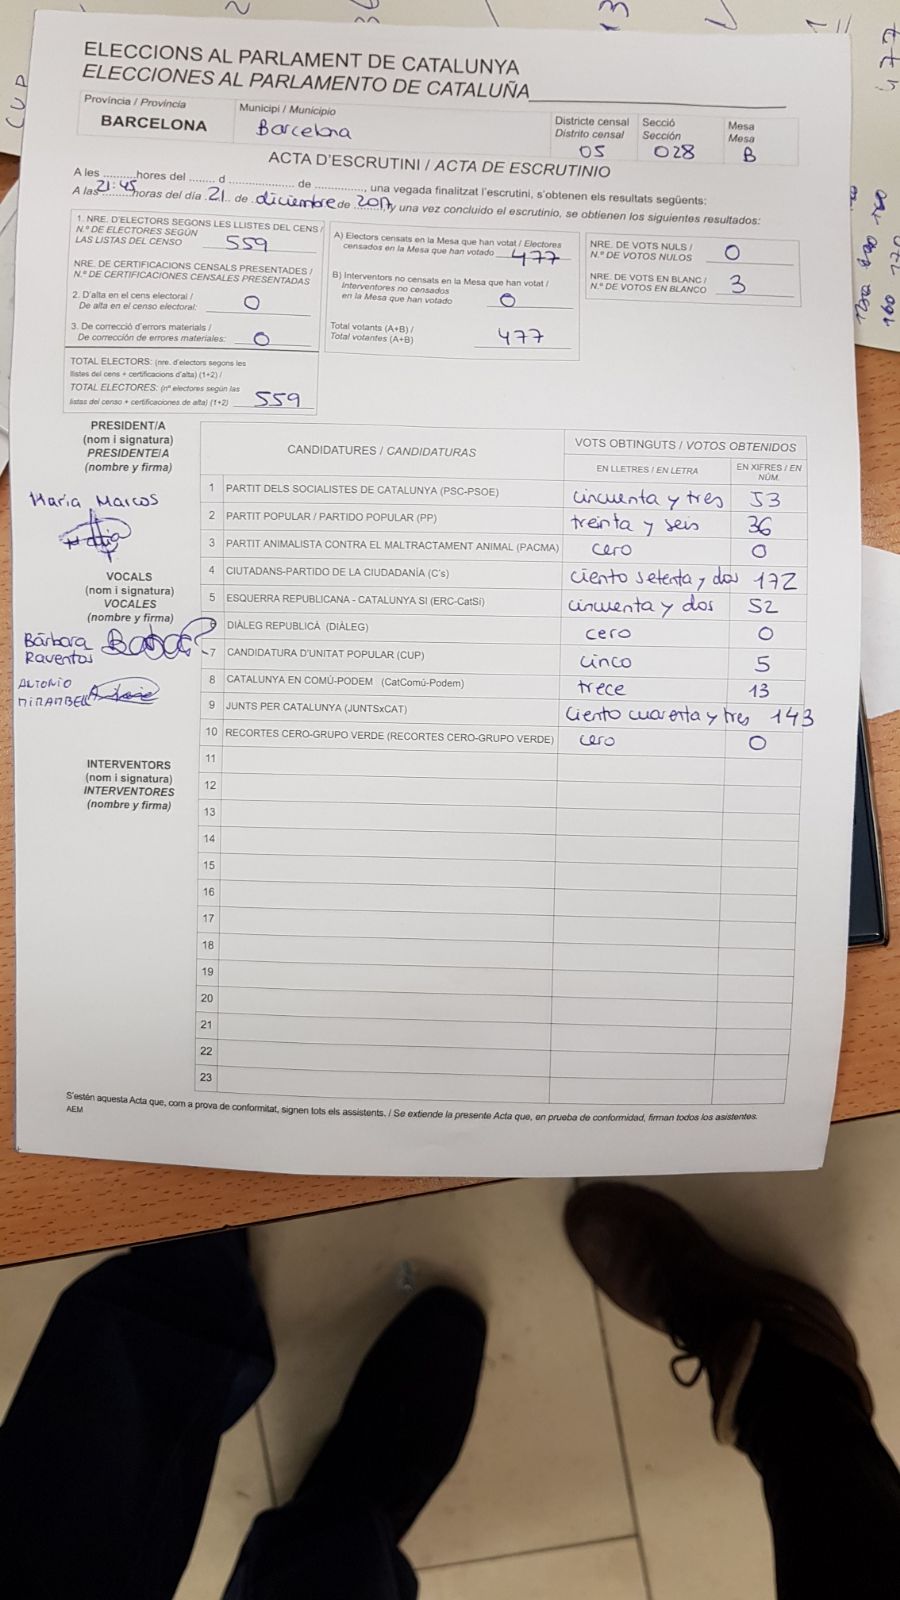 ELECCIONS AL PARLAMENT DE CATALUNYA
ELECCIONES AL PARLAMENTO DE CATALUÑA
Província / Provincia
BARCELONA
Municipi / Municipio
Barcelona
Districte censal
Distrito censal
05
Secció
Sección
028
Mesa
Mesa
B
ACTA D'ESCRUTINI / ACTA DE ESCRUTINIO
A les ..........hores del ........ d .................... de ..............., una vegada finalitzat l'escrutini, s'obtenen els resultats següents:
A las 21:45 horas del día 21 de diciembre de 2017 y una vez concluido el escrutinio, se obtienen los siguientes resultados:
1. NRE. D'ELECTORS SEGONS LES LLISTES DEL CENS /
N.º DE ELECTORES SEGÚN
LAS LISTAS DEL CENSO 559
NRE. DE CERTIFICACIONS CENSALS PRESENTADES /
N.º DE CERTIFICACIONES CENSALES PRESENTADAS
2. D'alta en el cens electoral /
De alta en el censo electoral: 0
3. De correcció d'errors materials /
De corrección de errores materiales: 0
TOTAL ELECTORS: (nre. d'electors segons les
llistes del cens + certificacions d'alta) (1+2) /
TOTAL ELECTORES: (nº electores según las
listas del censo + certificaciones de alta) (1+2) 559
A) Electors censats en la Mesa que han votat / Electores
censados en la Mesa que han votado 477
B) Interventors no censats en la Mesa que han votat /
Interventores no censados
en la Mesa que han votado 0
Total votants (A+B) /
Total votantes (A+B) 477
NRE. DE VOTS NULS /
N.º DE VOTOS NULOS 0
NRE. DE VOTS EN BLANC /
N.º DE VOTOS EN BLANCO 3
PRESIDENT/A
(nom i signatura)
PRESIDENTE/A
(nombre y firma)
Maria Marcos
VOCALS
(nom i signatura)
VOCALES
(nombre y firma)
Bárbara
Raventos
ANTONIO
MIRAMBELL
INTERVENTORS
(nom i signatura)
INTERVENTORES
(nombre y firma)
CANDIDATURES / CANDIDATURAS
VOTS OBTINGUTS / VOTOS OBTENIDOS
EN LLETRES / EN LETRA
EN XIFRES / EN NÚM.
1 PARTIT DELS SOCIALISTES DE CATALUNYA (PSC-PSOE) cincuenta y tres 53
2 PARTIT POPULAR / PARTIDO POPULAR (PP) treinta y seis 36
3 PARTIT ANIMALISTA CONTRA EL MALTRACTAMENT ANIMAL (PACMA) cero 0
4 CIUTADANS-PARTIDO DE LA CIUDADANÍA (C's) ciento setenta y dos 172
5 ESQUERRA REPUBLICANA - CATALUNYA SI (ERC-CatSí) cincuenta y dos 52
6 DIÀLEG REPUBLICÀ (DIÀLEG) cero 0
7 CANDIDATURA D'UNITAT POPULAR (CUP) cinco 5
8 CATALUNYA EN COMÚ-PODEM (CatComú-Podem) trece 13
9 JUNTS PER CATALUNYA (JUNTSxCAT) ciento cuarenta y tres 143
10 RECORTES CERO-GRUPO VERDE (RECORTES CERO-GRUPO VERDE) cero 0
11
12
13
14
15
16
17
18
19
20
21
22
23
S'estén aquesta Acta que, com a prova de conformitat, signen tots els assistents. / Se extiende la presente Acta que, en prueba de conformidad, firman todos los asistentes.
AEM
CUP
13
477